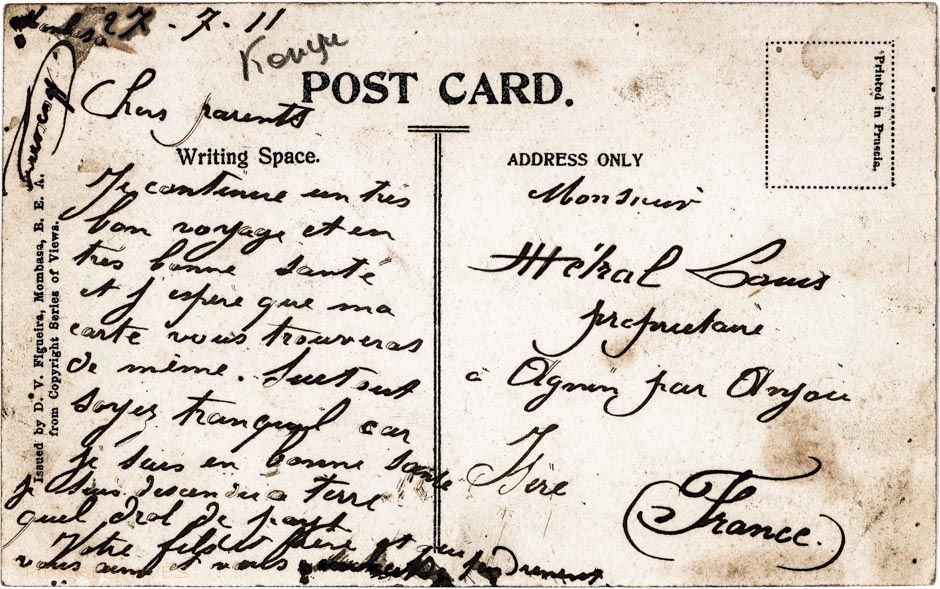 Mombasa 27-7-11
Kenya
POST CARD.
Printed in Prussia.
Chers parents
Writing Space.
ADDRESS ONLY
Je continue un très
bon voyage et en
tres bonne santé
et j'espere que ma
carte vous trouveras
de même. Surtout
soyez tranquil car
je suis en bonne sante
je suis descendu a terre
quel drol de payt
Votre fils et frère et qui
vous aime et vous tendrement.
Monsieur
Métral Louis
propriétaire
à Agnin par Anjou
Isère
(France.)
Issued by D. V. Figueira, Mombasa, B. E. A.
from Copyright Series of Views.